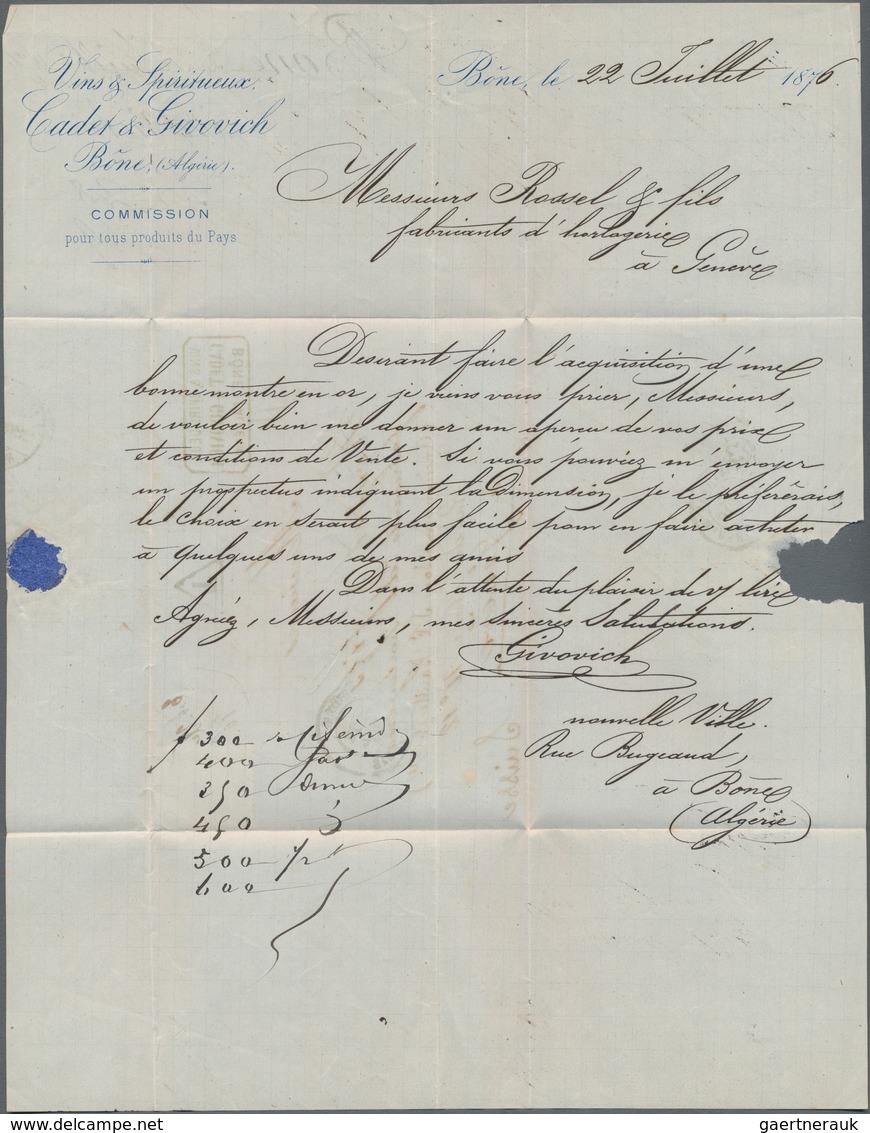 Vins & Spiritueux.
Cadet & Givovich
Bône, (Algérie).
COMMISSION
pour tous produits du Pays
Bône, le 22 Juillet 1876.
Messieurs Rossel & fils
fabricants d'horlogerie
à Genève
Desirant faire l'acquisition d'une
bonne montre en or, je viens vous prier, Messieurs,
de vouloir bien me donner un aperçu de vos prix
et conditions de Vente. Si vous pouviez m'envoyer
un prospectus indiquant la Dimension, je le préférerais,
le choix en serait plus facile pour en faire acheter
à quelques uns de mes amis
Dans l'attente du plaisir de v/ lire
Agréez, Messieurs, mes sincères Salutations.
Givovich
nouvelle Ville.
Rue Bugeaud,
à Bône
(Algérie)
300
400
350
450
500
600
delcampe.net
gaertnerauk